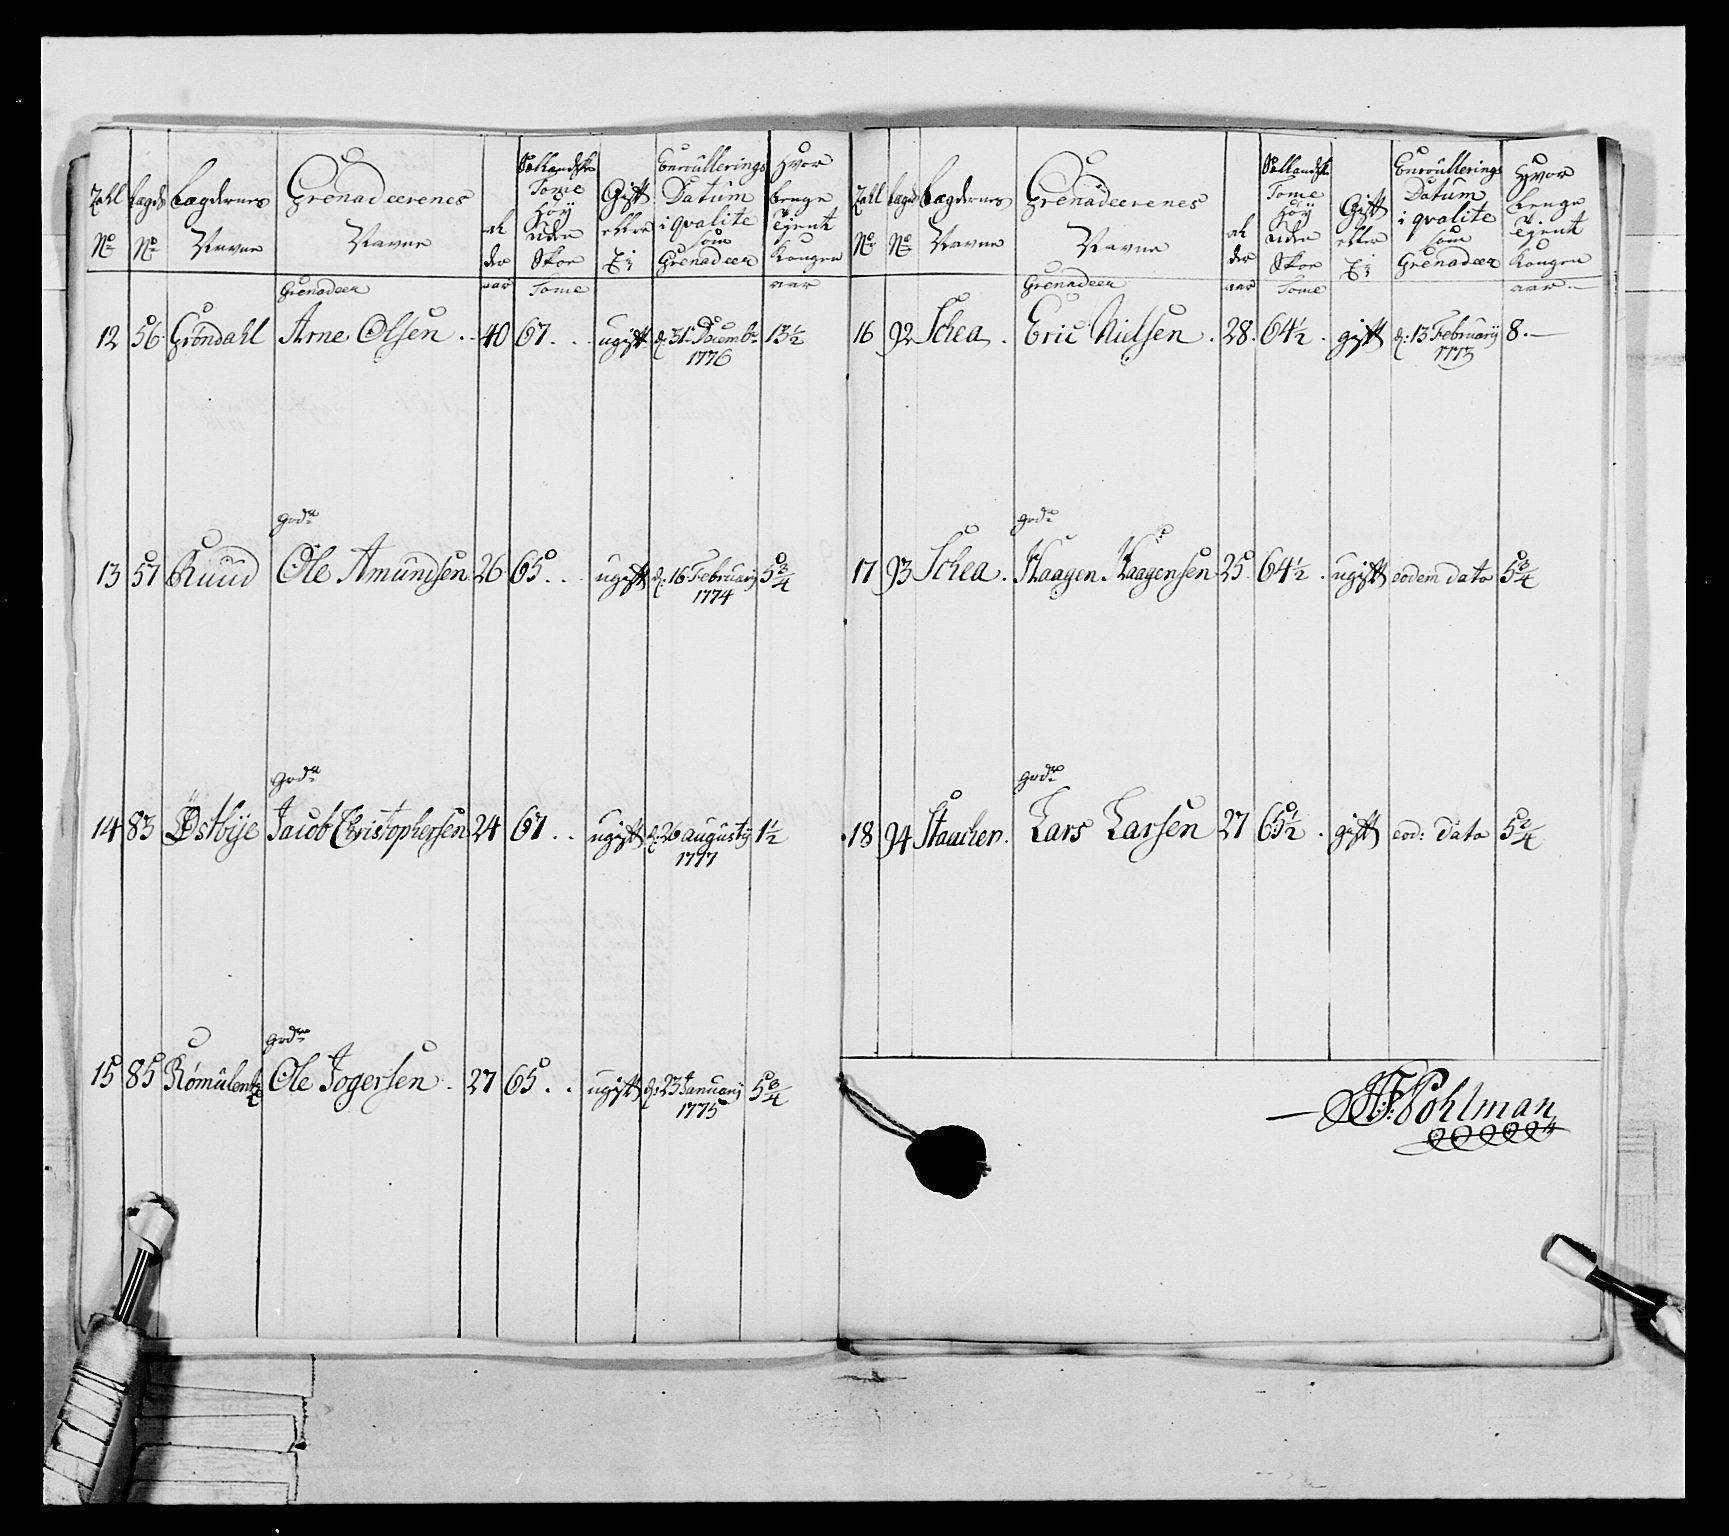 Zahl No
Lægds No
Lægdernes Navne
Grenadeerenes Navne
Alder
Sællandske Tome Höy uden Skoe
Gift eller Ej
Enroullerings Datum i qvalite som Grenadeer
Hvor Lenge Tjent Kongen
Grenadeer aar Tome aar
12 56 Gröndahl Arne Olsen 40 67 ugift d: 31 Decemb: 1776 13½
god:
13 57 Ruud Ole Amundsen 26 65 ugift d: 16 February 1774 5¾
god:
14 83 Østbÿe Jacob Christophersen 24 67 ugift d: 26 augusty 1777 1½
god:
15 85 Ole Jogersen 27 65 ugift d: 23 January 1775 5¾
Zahl No
Lægds No
Lægdernes Navne
Grenadeerenes Navne
Alder
Sællandsk Tome Höy uden Skoe
Gift eller Ej
Enroullerings Datum i qvalite som Grenadeer
Hvor Lenge Tjent Kongen
Grenadeer aar Tome aar
16 92 Schea Eric Nielsen 28 64½ gift d: 13 February 1773 8
god:
17 93 Schea Haagen Haagensen 25 64½ ugift eodem dato 5¾
god:
18 94 Staucher Lars Larsen 27 65½ gift eod: dato 5¾
Pohlman